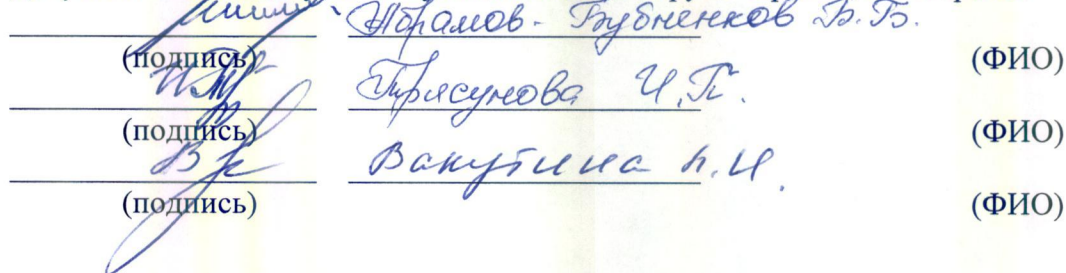 Абрамов-Бубненков Б.Б.
(подпись) (ФИО)
Трясунова И.П.
(подпись) (ФИО)
Вакутина Л.И.
(подпись) (ФИО)